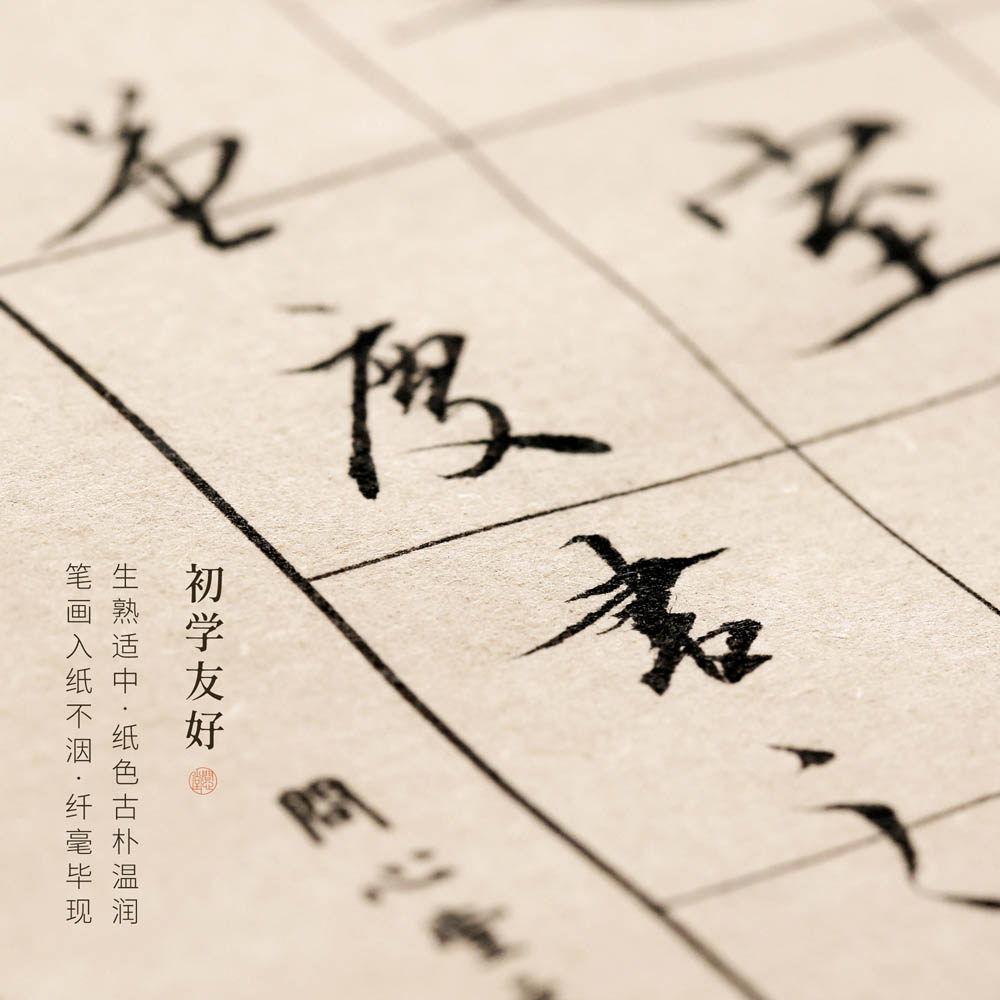 初学友好
生熟适中·纸色古朴温润
笔画入纸不洇·纤毫毕现
室
問心堂